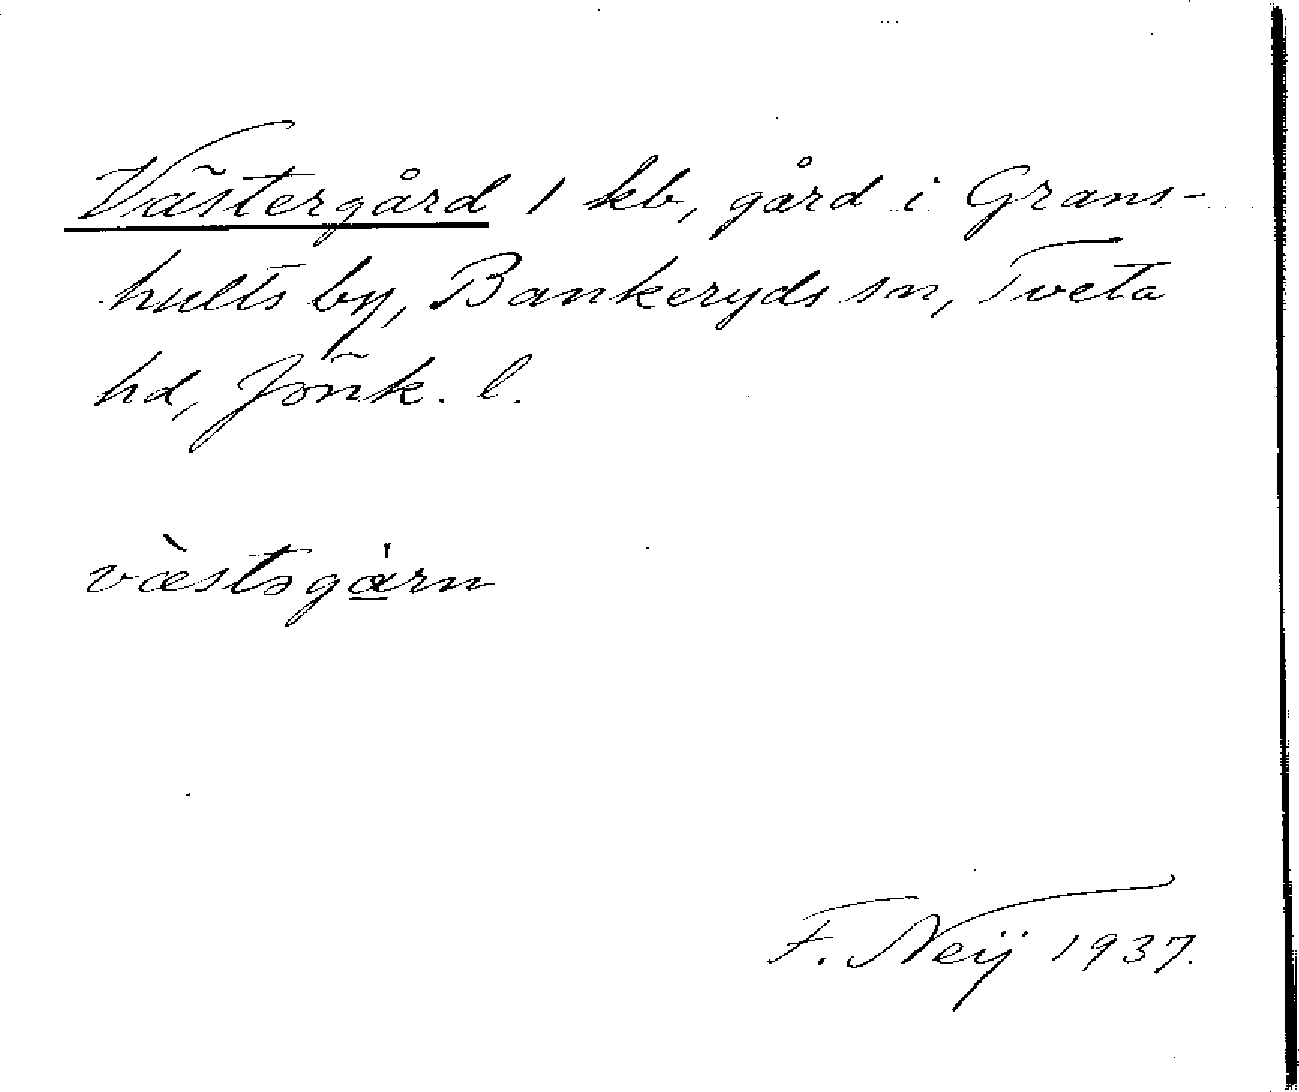 Västergård 1 kb, gård i Grans-
hults by, Bankeryds sn, Tveta
hd, Jönk. l.
vàstəga̲̍rn
F. Neij 1937.